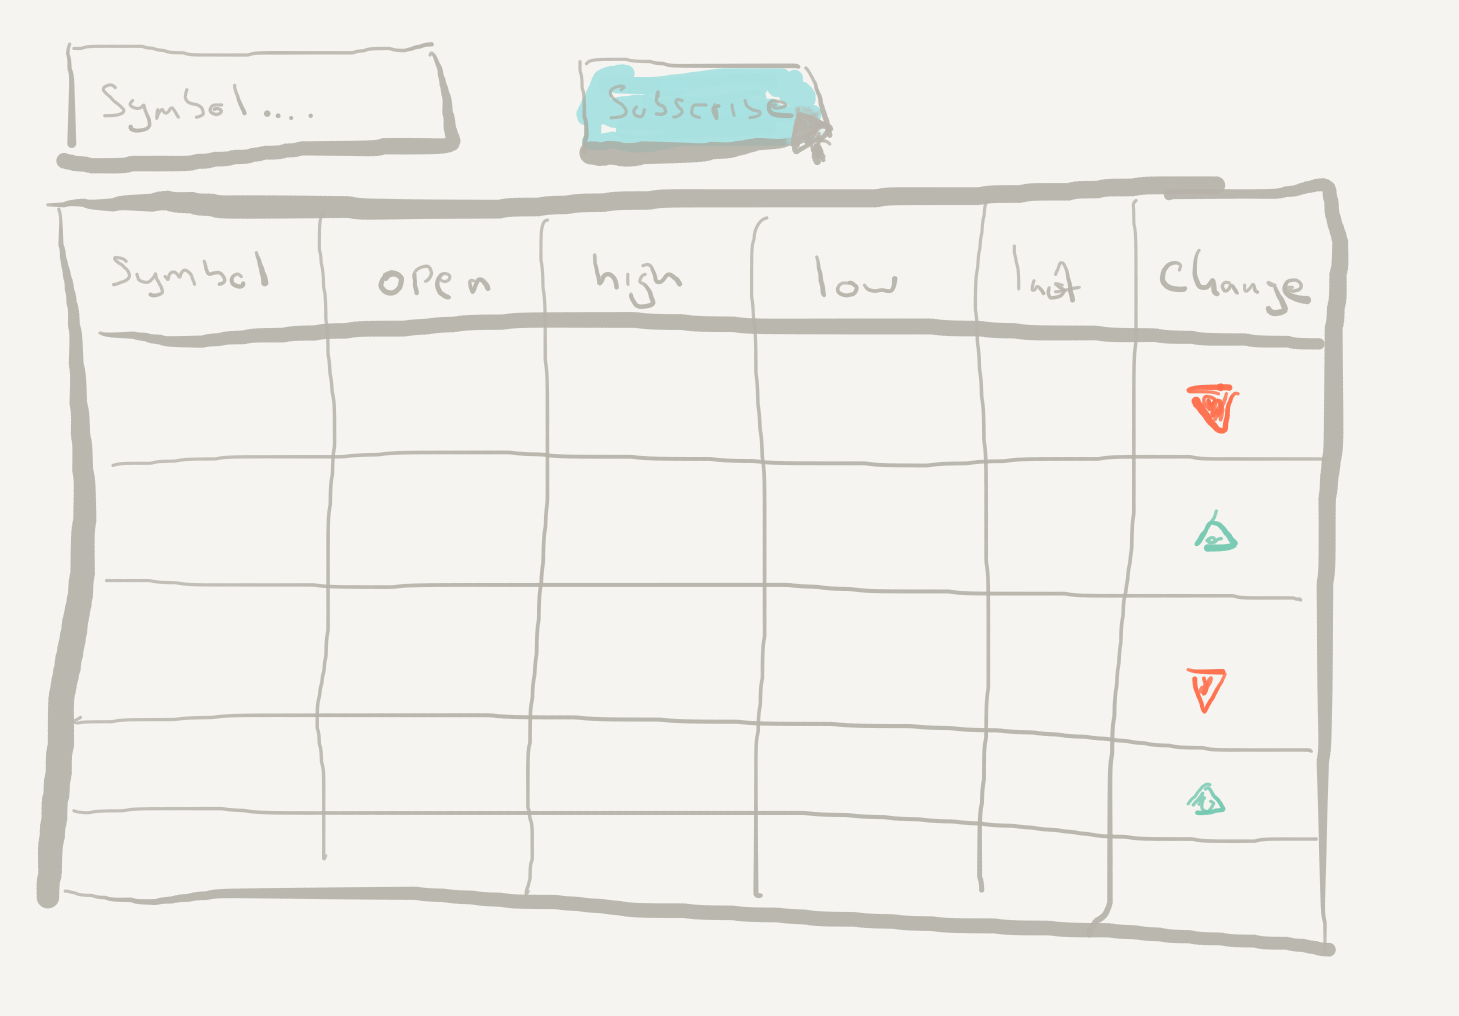 Symbol....
Subscribe
Symbol open high low last Change